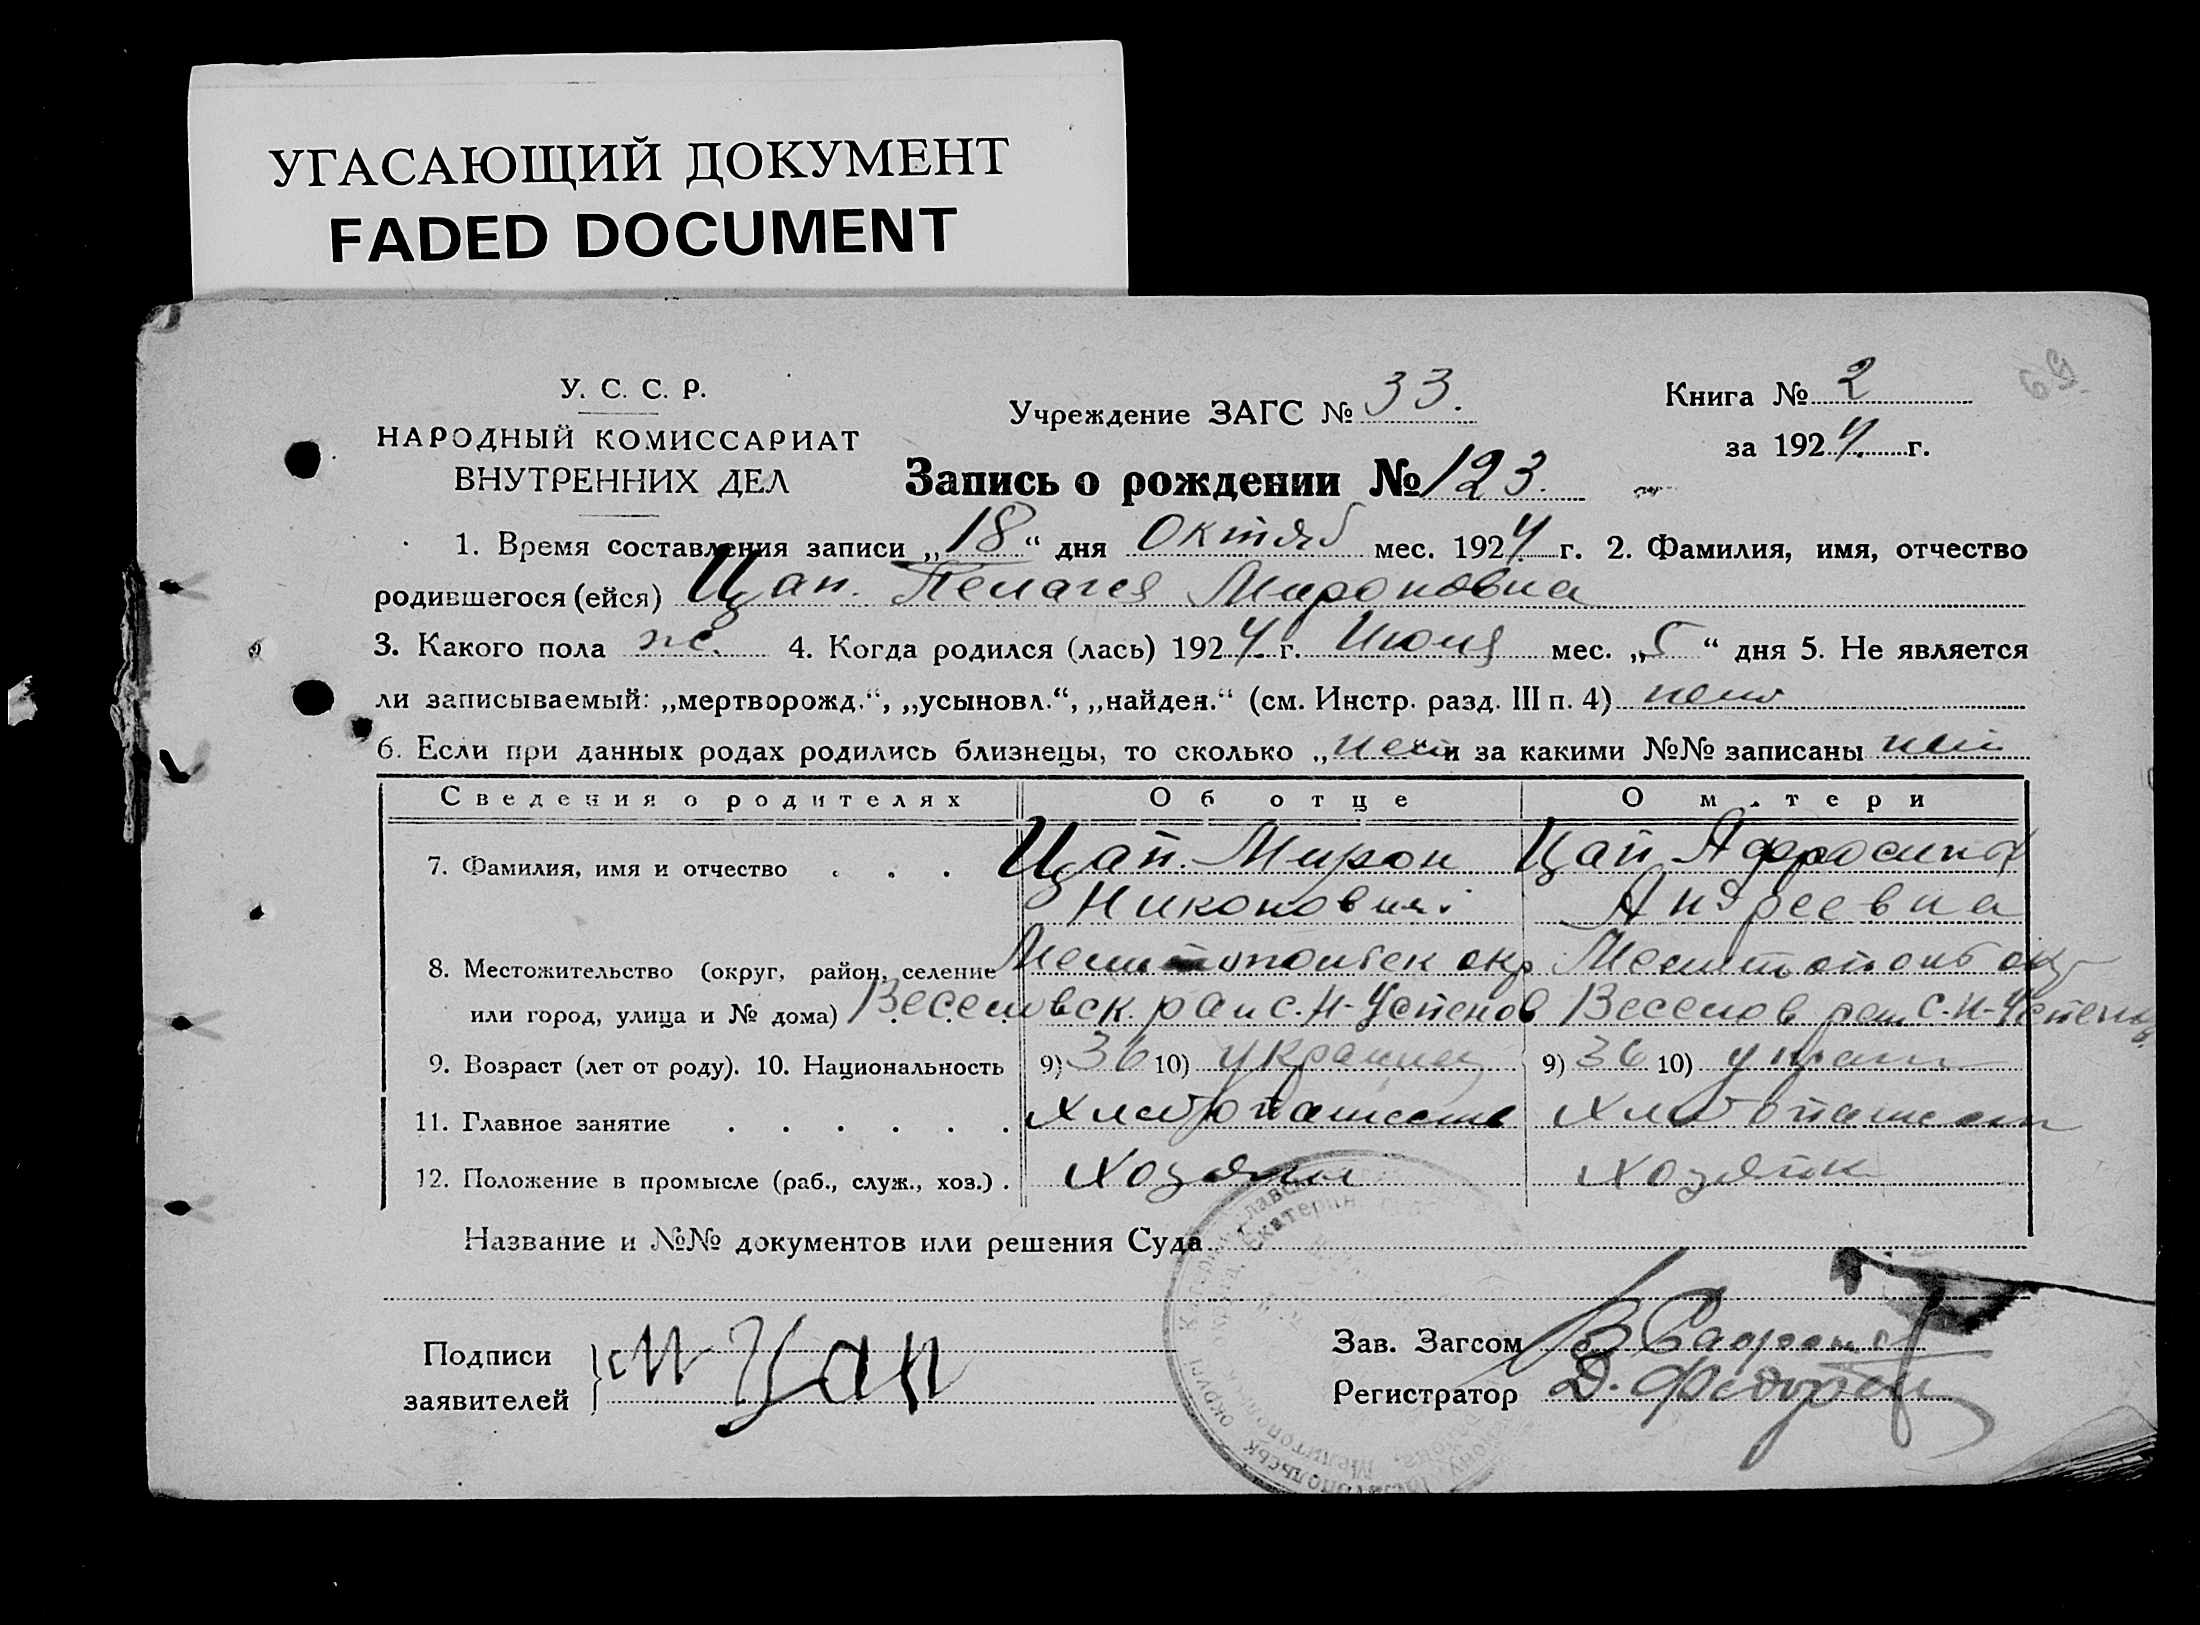 УГАСАЮЩИЙ ДОКУМЕНТ
FADED DOCUMENT
69.
У. С. С. Р.
НАРОДНЫЙ КОМИССАРИАТ
ВНУТРЕННИХ ДЕЛ
Учреждение ЗАГС № 33.
Книга № 2
за 1924 г.
Запись о рождении № 123.
1. Время составления записи „18“ дня Октяб мес. 1924 г. 2. Фамилия, имя, отчество
родившегося (ейся) Цап. Пелагея Мироновна
3. Какого пола ж. 4. Когда родился (лась) 1924 г. Июля мес. „5“ дня 5. Не является
ли записываемый: „мертворожд.“, „усыновл.“, „найден.“ (см. Инстр. разд. III п. 4) нет
6. Если при данных родах родились близнецы, то сколько „нет и за какими №№ записаны нет
Сведения о родителях Об отце О м.тери
7. Фамилия, имя и отчество . . . Цап. Мирон Цап Афросинья
Никонович Андреевна
8. Местожительство (округ, район, селение Мелитопольск окр Мелитополь окр
или город, улица и № дома) Веселовск. раи с. Н-Успенов Веселов раи с. Н-Успенов
9. Возраст (лет от роду). 10. Национальность 9) 36 10) украинец 9) 36 10) украи
11. Главное занятие . . . . . . Хлебопашеств Хлебопашест
12. Положение в промысле (раб., служ., хоз.) . Хозяин Хозяйк
Название и №№ документов или решения Суда
Подписи
заявителей } М Цап
Зав. Загсом
Регистратор Д.